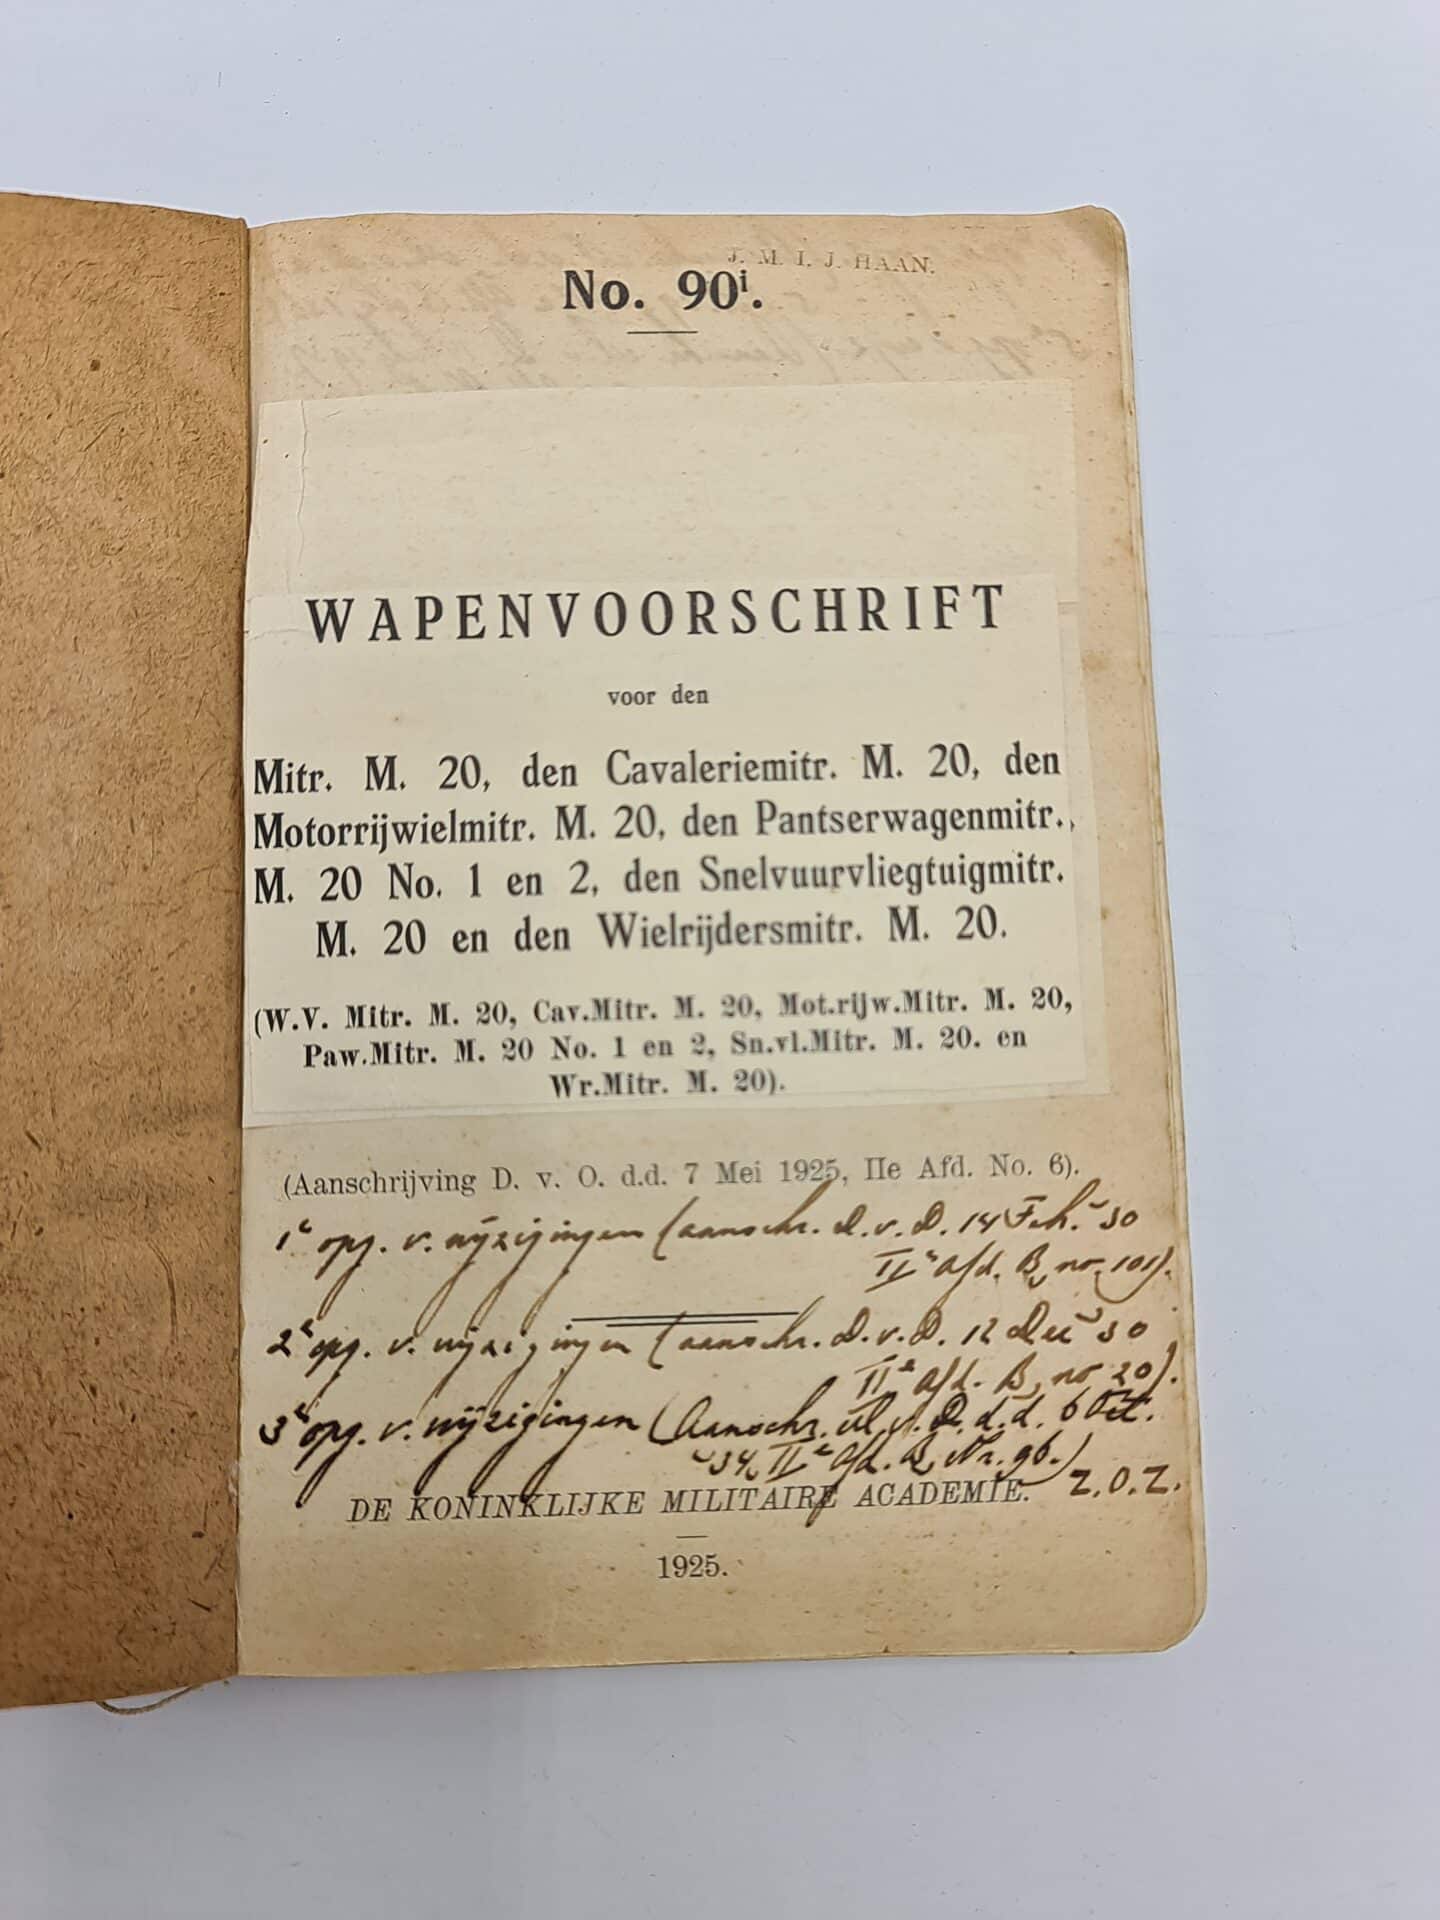 J. M. I. J. HAAN.
No. 90i.
WAPENVOORSCHRIFT
voor den
Mitr. M. 20, den Cavaleriemitr. M. 20, den
Motorrijwielmitr. M. 20, den Pantserwagenmitr.,
M. 20 No. 1 en 2, den Snelvuurvliegtuigmitr.
M. 20 en den Wielrijdersmitr. M. 20.
(W.V. Mitr. M. 20, Cav.Mitr. M. 20, Mot.rijw.Mitr. M. 20,
Paw.Mitr. M. 20 No. 1 en 2, Sn.vl.Mitr. M. 20. en
Wr.Mitr. M. 20).
(Aanschrijving D. v. O. d.d. 7 Mei 1925, IIe Afd. No. 6).
1e opg. v. wijzigingen (aanschr. D. v. D. 14 Feb. '30
IIe afd. B, no. 101).
2e opg. v. wijzigingen (aanschr. D. v. D. 12 Dec '30
IIe afd. B, no 20).
3e opg. v. wijzigingen (Aanschr. M. v. D. d.d. 6 Oct.
'34, IIe Afd. B, Nr. 96.)
Z.O.Z.
DE KONINKLIJKE MILITAIRE ACADEMIE.
1925.